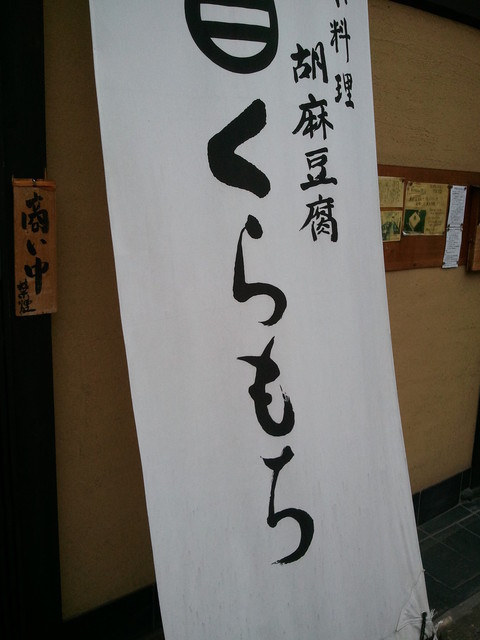 料理
胡麻豆腐
くらもち
商い中
禁煙